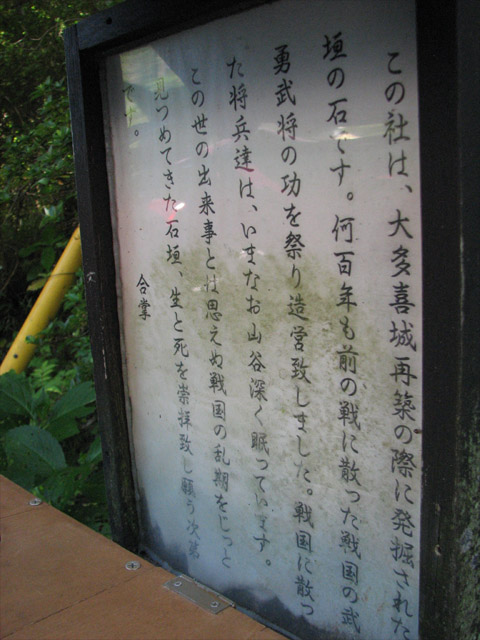 この社は、大多喜城再築の際に発掘された
垣の石です。何百年も前の戦に散った戦国の武
勇武将の功を祭り造営致しました。戦国に散っ
た将兵達は、いまなお山谷深く眠っています。
この世の出来事とは思えぬ戦国の乱期をじっと
見つめてきた石垣、生と死を崇拝致し願う次第
です。
合掌